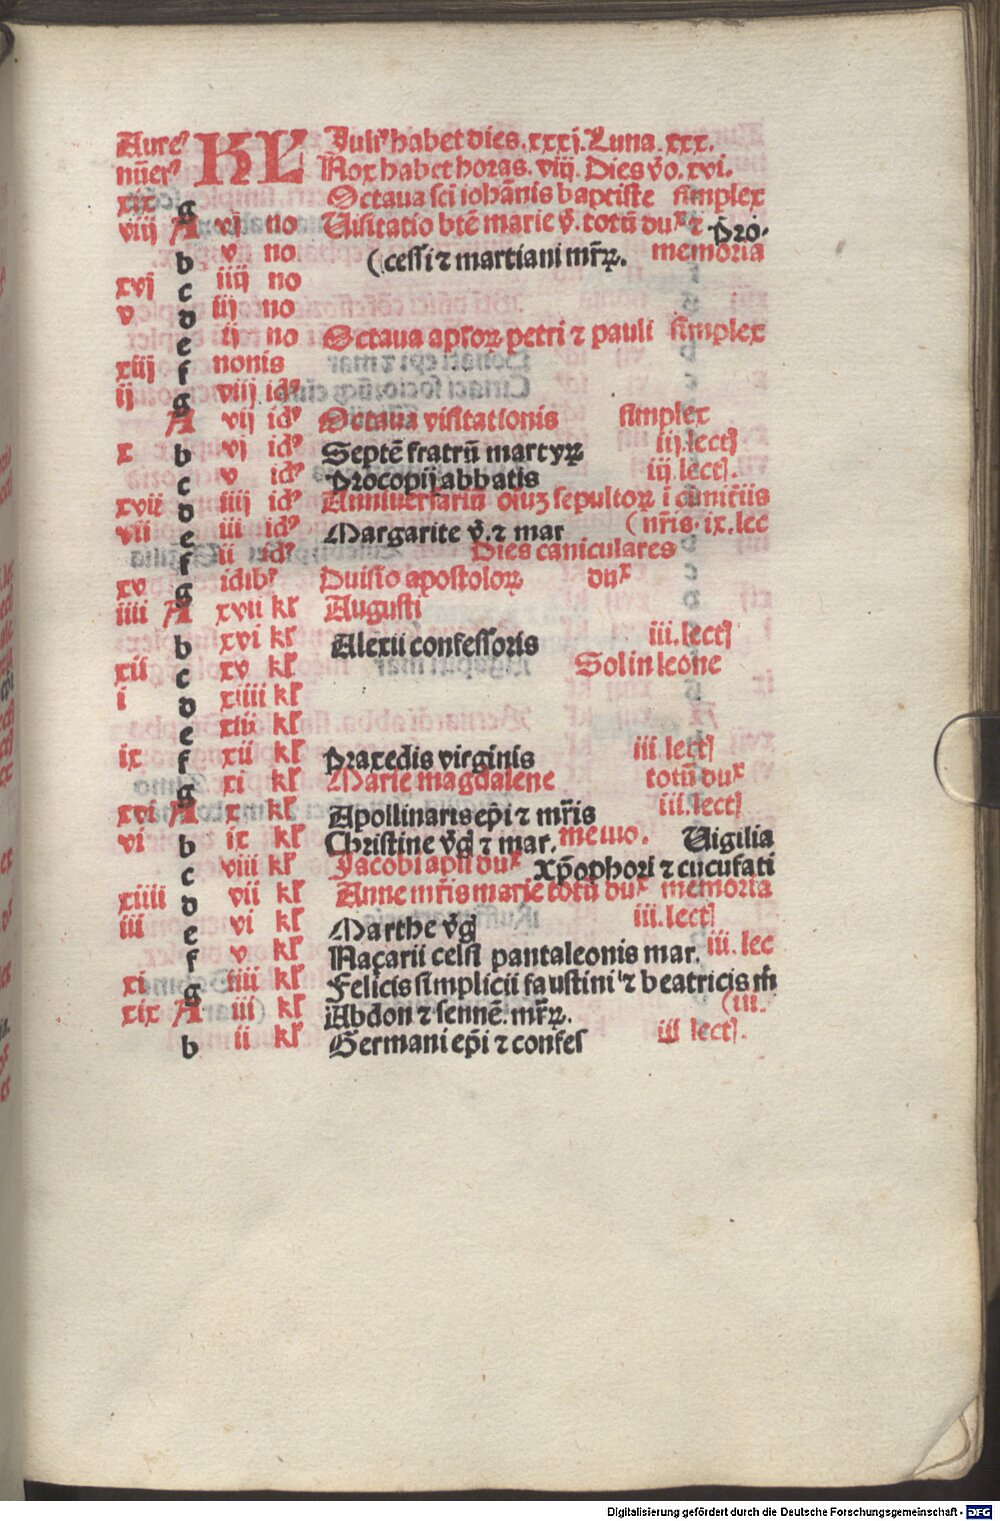 Aureꝰ KL Juliꝰ habet dies. xxxj. Luna. xxx.
nũerꝰ Nox habet horas. viij. Dies v̊o. xvi.
xix g Octaua sci̅ ioha̅nis baptiste simplex
viij A vj no Uisitatio bt̅e marie v̊. totũ duˣ ⁊ Pro-
b v no (cessi ⁊ martiani mr̅ꝝ. memoria
xvj c iiij no
v d iij no
e ij no Octaua apl̅oꝝ petri ⁊ pauli simplex
xiij f nonis
ij g viij idꝰ
A vij idꝰ Octaua visitationis simplex
x b vj idꝰ Septe̅ fratrũ martyrꝝ iij. lectʒ
c v idꝰ Procopij abbatis iij. lectʒ.
xvij d iiij idꝰ Anniuersariũ oi̅uʒ sepultoꝝ i̅ cimit̅iis
vii e iii idꝰ Margarite v̊. ⁊ mar (nr̅is. ix. lec
f ii idꝰ Dies caniculares
xv g idibꝰ Diuisio apostoloꝝ duˣ
iiii A xvii kl̅ Augusti
b xvi kl̅ Alexii confessoris iii. lectʒ
xii c xv kl̅ Sol in leone
i d xiiii kl̅
e xiii kl̅
ix f xii kl̅ Praxedis virginis iii. lectʒ
g xi kl̅ Marie magdalene totũ duˣ
xvi A x kl̅ Apollinaris ep̅i ⁊ mr̅is iii. lectʒ
vi b ix kl̅ Christine v̊g ⁊ mar. memo. Uigilia
c viii kl̅ Jacobi apl̅i duˣ xp̅ophori ⁊ cucufati
xiiii d vii kl̅ Anne mr̅is marie totũ duˣ memoria
iii e vi kl̅ Marthe v̊g iii. lectʒ
f v kl̅ Naçarii celsi pantaleonis mar. iii. lec
xi g iiii kl̅ Felicis simplicii faustini ⁊ beatricis m̅
xix A iii kl̅ Abdon ⁊ senne̅. mr̅ꝝ. (iii.
b ii kl̅ Germani ep̅i ⁊ confes iii lectʒ.
Digitalisierung gefördert durch die Deutsche Forschungsgemeinschaft - DFG